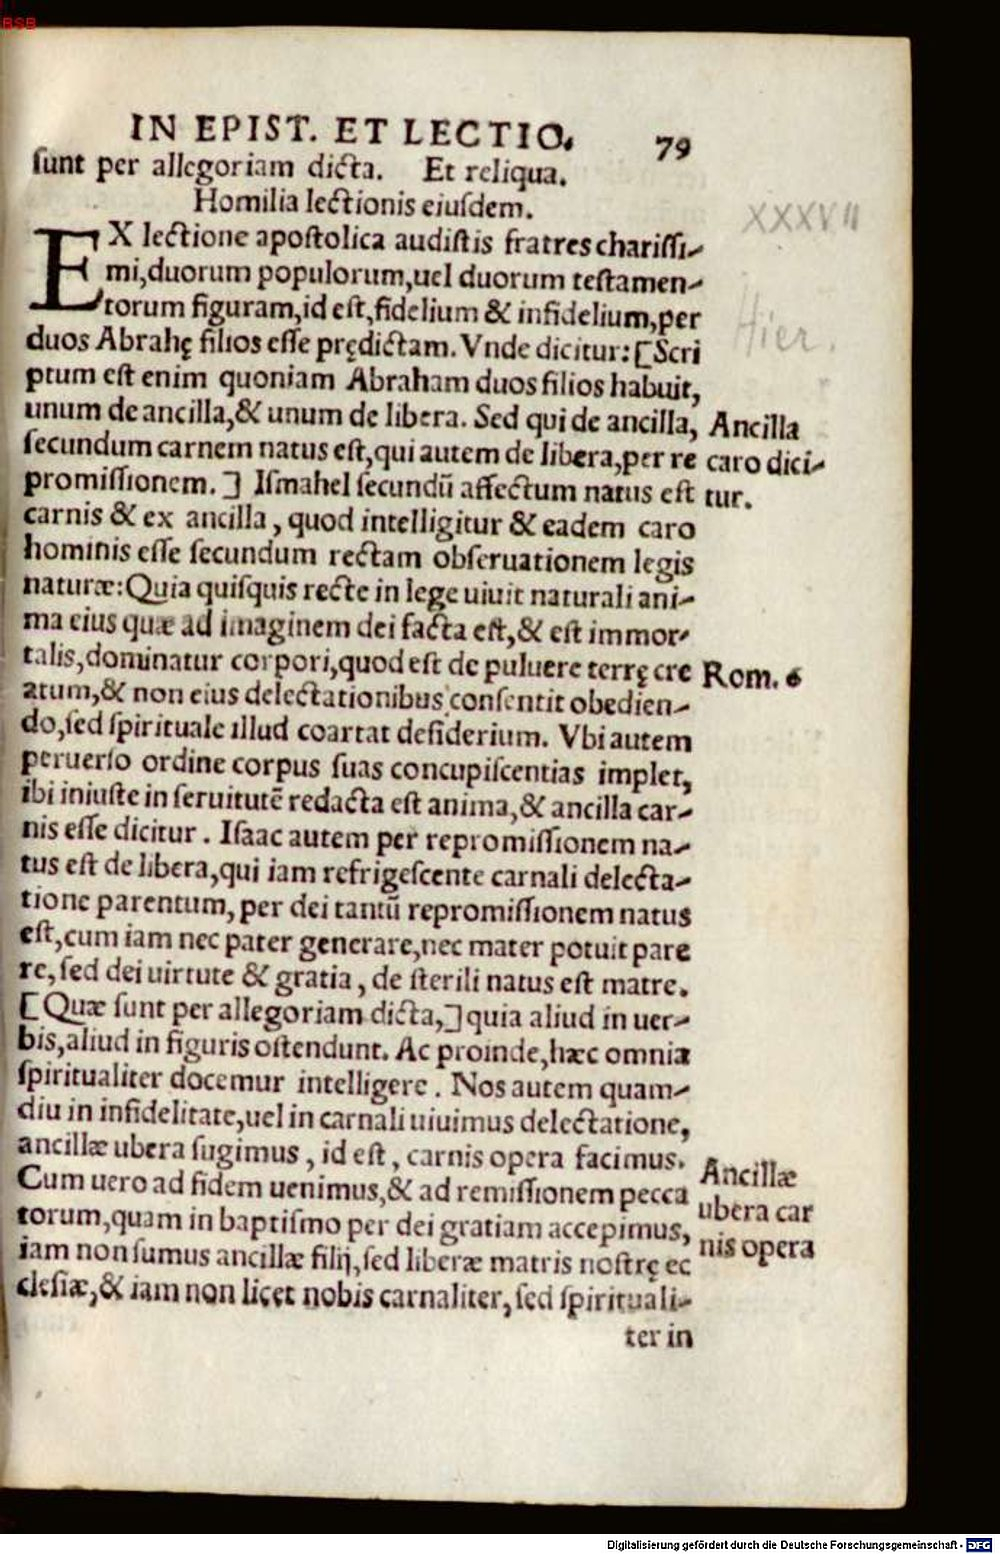 BSB
IN EPIST. ET LECTIO. 79
ſunt per allegoriam dicta. Et reliqua.
Homilia lectionis eiuſdem.
EX lectione apoſtolica audiſtis fratres chariſſi-
mi,duorum populorum,uel duorum teſtamen-
torum figuram,id eſt,fidelium & infidelium,per
duos Abrahę filios eſſe prędictam. Vnde dicitur: [Scri
ptum eſt enim quoniam Abraham duos filios habuit,
unum de ancilla,& unum de libera. Sed qui de ancilla,
ſecundum carnem natus eſt,qui autem de libera,per re
promiſſionem.] Iſmahel ſecundū affectum natus eſt
carnis & ex ancilla, quod intelligitur & eadem caro
hominis eſſe ſecundum rectam obſeruationem legis
naturæ: Quia quiſquis recte in lege uiuit naturali ani-
ma eius quæ ad imaginem dei facta eſt,& eſt immor-
talis,dominatur corpori,quod eſt de puluere terrę cre
atum,& non eius delectationibus conſentit obedien-
do,ſed ſpirituale illud coartat deſiderium. Vbi autem
peruerſo ordine corpus ſuas concupiſcentias implet,
ibi iniuſte in ſeruitutē redacta eſt anima,& ancilla car-
nis eſſe dicitur. Iſaac autem per repromiſſionem na-
tus eſt de libera,qui iam refrigeſcente carnali delecta-
tione parentum, per dei tantū repromiſſionem natus
eſt,cum iam nec pater generare,nec mater potuit pare
re,ſed dei uirtute & gratia, de ſterili natus eſt matre.
[Quæ ſunt per allegoriam dicta,] quia aliud in uer-
bis,aliud in figuris oſtendunt. Ac proinde,hæc omnia
ſpiritualiter docemur intelligere. Nos autem quam-
diu in infidelitate,uel in carnali uiuimus delectatione,
ancillæ ubera ſugimus, id eſt, carnis opera facimus.
Cum uero ad fidem uenimus,& ad remiſſionem pecca
torum,quam in baptiſmo per dei gratiam accepimus,
iam non ſumus ancillæ filij,ſed liberæ matris noſtrę ec
cleſiæ,& iam non licet nobis carnaliter, ſed ſpirituali-
ter in
XXXVII
Hier.
Ancilla
caro dici-
tur.
Rom. 6
Ancillæ
ubera car
nis opera
Digitalisierung gefördert durch die Deutsche Forschungsgemeinschaft - DFG